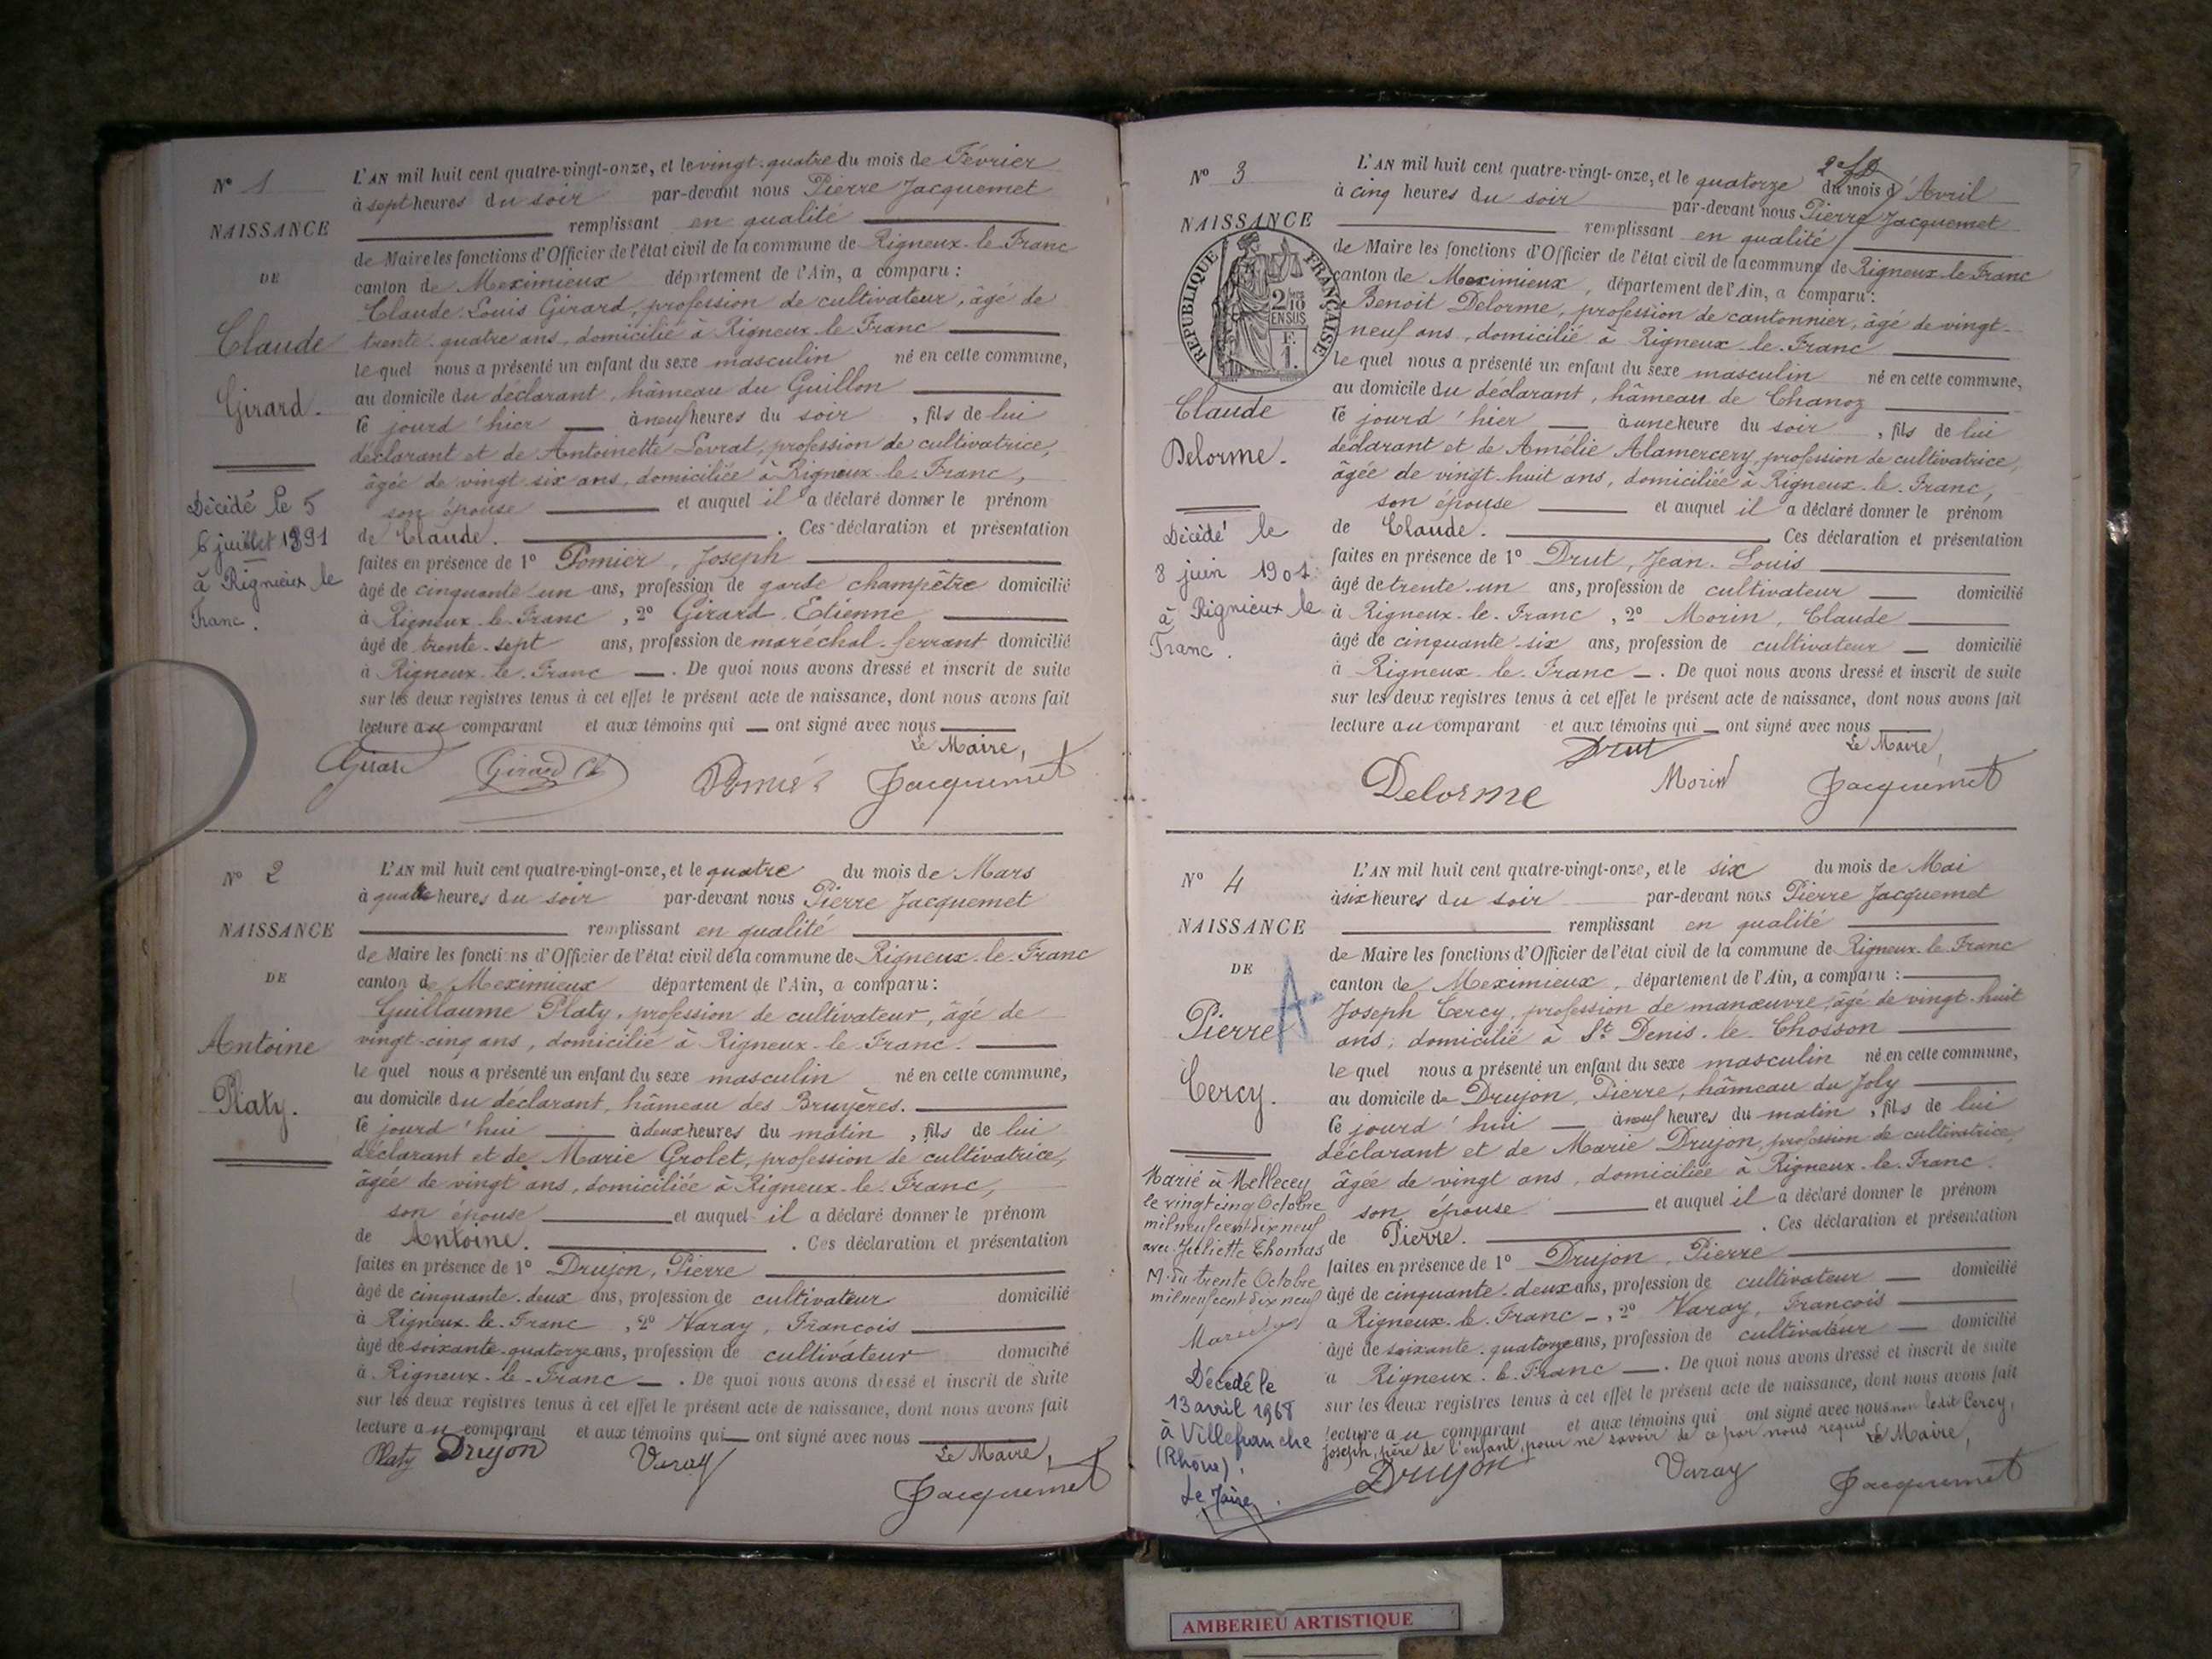 N° 1
NAISSANCE
DE
Claude
Girard.
Décidé le 5
6 juillet 1891
à Rignieux le
Franc.
L'AN mil huit cent quatre-vingt-onze, et le vingt-quatre du mois de Février
à sept heures du soir par-devant nous Pierre Jacquemet
remplissant en qualité
de Maire les fonctions d'Officier de l'état civil de la commune de Rigneux-le-Franc
canton de Meximieux département de l'Ain, a comparu :
Claude Louis Girard, profession de cultivateur, âgé de
trente-quatre ans, domicilié à Rigneux-le-Franc
le quel nous a présenté un enfant du sexe masculin né en cette commune,
au domicile du déclarant, hâmeau du Guillon
le jourd'hier à neuf heures du soir, fils de lui
déclarant et de Antoinette Levrat, profession de cultivatrice,
âgée de vingt six ans, domiciliée à Rigneux-le-Franc,
son épouse et auquel il a déclaré donner le prénom
de Claude. Ces déclaration et présentation
faites en présence de 1° Pomier, Joseph
âgé de cinquante un ans, profession de garde champêtre domicilié
à Rigneux-le-Franc, 2° Girard, Etienne
âgé de trente-sept ans, profession de maréchal-ferrant domicilié
à Rigneux-le-Franc. De quoi nous avons dressé et inscrit de suite
sur les deux registres tenus à cet effet le présent acte de naissance, dont nous avons fait
lecture au comparant et aux témoins qui ont signé avec nous
Le Maire,
Girard Jacquemet
N° 2
NAISSANCE
DE
Antoine
Platy.
L'AN mil huit cent quatre-vingt-onze, et le quatre du mois de Mars
à quatre heures du soir par-devant nous Pierre Jacquemet
remplissant en qualité
de Maire les fonctions d'Officier de l'état civil de la commune de Rigneux-le-Franc
canton de Meximieux département de l'Ain, a comparu :
Guillaume Platy, profession de cultivateur, âgé de
vingt-cinq ans, domicilié à Rigneux-le-Franc.
le quel nous a présenté un enfant du sexe masculin né en cette commune,
au domicile du déclarant, hâmeau des Bruyères.
le jourd'hui à deux heures du matin, fils de lui
déclarant et de Marie Grolet, profession de cultivatrice,
âgée de vingt ans, domiciliée à Rigneux-le-Franc,
son épouse et auquel il a déclaré donner le prénom
de Antoine. Ces déclaration et présentation
faites en présence de 1° Drujon, Pierre
âgé de cinquante-deux ans, profession de cultivateur domicilié
à Rigneux-le-Franc, 2° Varay, François
âgé de soixante-quatorze ans, profession de cultivateur domicilié
à Rigneux-le-Franc. De quoi nous avons dressé et inscrit de suite
sur les deux registres tenus à cet effet le présent acte de naissance, dont nous avons fait
lecture au comparant et aux témoins qui ont signé avec nous
Le Maire,
Platy Drujon Varay Jacquemet
N° 3
NAISSANCE
RÉPUBLIQUE FRANÇAISE
2/10
EN SUS
F.
1.
Claude
Delorme.
Décidé le
8 juin 1901
à Rignieux le
Franc.
L'AN mil huit cent quatre-vingt-onze, et le quatorze du mois d'Avril
à cinq heures du soir par-devant nous Pierre Jacquemet
remplissant en qualité
de Maire les fonctions d'Officier de l'état civil de la commune de Rigneux-le-Franc
canton de Meximieux, département de l'Ain, a comparu :
Benoit Delorme, profession de cantonnier, âgé de vingt-
neuf ans, domicilié à Rigneux-le-Franc
le quel nous a présenté un enfant du sexe masculin né en cette commune,
au domicile du déclarant, hâmeau de Chanoz
le jourd'hier à une heure du soir, fils de lui
déclarant et de Amélie Alamercery, profession de cultivatrice,
âgée de vingt-huit ans, domiciliée à Rigneux-le-Franc,
son épouse et auquel il a déclaré donner le prénom
de Claude. Ces déclaration et présentation
faites en présence de 1° Drut, Jean-Louis
âgé de trente-un ans, profession de cultivateur domicilié
à Rigneux-le-Franc, 2° Morin, Claude
âgé de cinquante-six ans, profession de cultivateur domicilié
à Rigneux-le-Franc. De quoi nous avons dressé et inscrit de suite
sur les deux registres tenus à cet effet le présent acte de naissance, dont nous avons fait
lecture au comparant et aux témoins qui ont signé avec nous
Drut Le Maire,
Delorme Morin Jacquemet
N° 4
NAISSANCE
DE
A
Pierre
Cercy.
Marié à Mellecey
le vingt cinq Octobre
mil neuf cent dix neuf
avec Juliette Thomas
M. du trente Octobre
mil neuf cent dix neuf
Décédé le
13 avril 1968
à Villefranche
(Rhône).
Le Maire.
L'AN mil huit cent quatre-vingt-onze, et le six du mois de Mai
à six heures du soir par-devant nous Pierre Jacquemet
remplissant en qualité
de Maire les fonctions d'Officier de l'état civil de la commune de Rigneux-le-Franc
canton de Meximieux, département de l'Ain, a comparu :
Joseph Cercy, profession de manœuvre, âgé de vingt-huit
ans, domicilié à St Denis-le-Chosson
le quel nous a présenté un enfant du sexe masculin né en cette commune,
au domicile de Drujon, Pierre, hâmeau du Joly
le jourd'hui à neuf heures du matin, fils de lui
déclarant et de Marie Drujon, profession de cultivatrice,
âgée de vingt ans, domiciliée à Rigneux-le-Franc.
son épouse et auquel il a déclaré donner le prénom
de Pierre. Ces déclaration et présentation
faites en présence de 1° Drujon, Pierre
âgé de cinquante-deux ans, profession de cultivateur domicilié
à Rigneux-le-Franc, 2° Varay, François
âgé de soixante-quatorze ans, profession de cultivateur domicilié
à Rigneux-le-Franc. De quoi nous avons dressé et inscrit de suite
sur les deux registres tenus à cet effet le présent acte de naissance, dont nous avons fait
lecture au comparant et aux témoins qui ont signé avec nous non ledit Cercy,
Joseph, père de l'enfant, pour ne savoir de ce par nous requis Le Maire,
Drujon Varay Jacquemet
AMBERIEU ARTISTIQUE